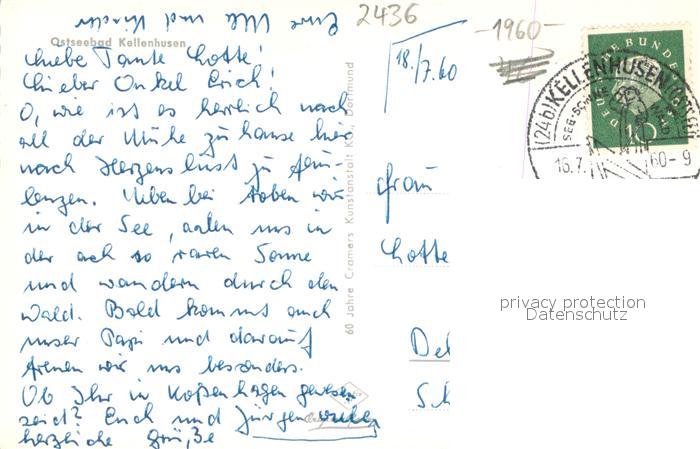 Eure Ulla und Kinder
2436
Ostseebad Kellenhusen
Liebe Tante Lotte!
Lieber Onkel Erich!
O, wie ist es herrlich nach
all der Mühe zuhause hier
nach Herzenslust zu fau-
lenzen. Neben bei toben wir
in der See, aalen uns in
der ach so raren Sonne
und wandern durch den
Wald. Bald kommt auch
unser Papi und darauf
freuen wir uns besonders.
Ob Ihr in Kopenhagen gewesen
seid? Euch und Jürgen viele
herzliche Grüße
60 Jahre Cramers Kunstanstalt KG, Dortmund
18./7.60
-1960-
Frau
Lotte
Del
Sch
DEUTSCHE BUNDESPOST
10
(24b) KELLENHUSEN (OSTSEE)
16.7. 60-9
privacy protection
Datenschutz